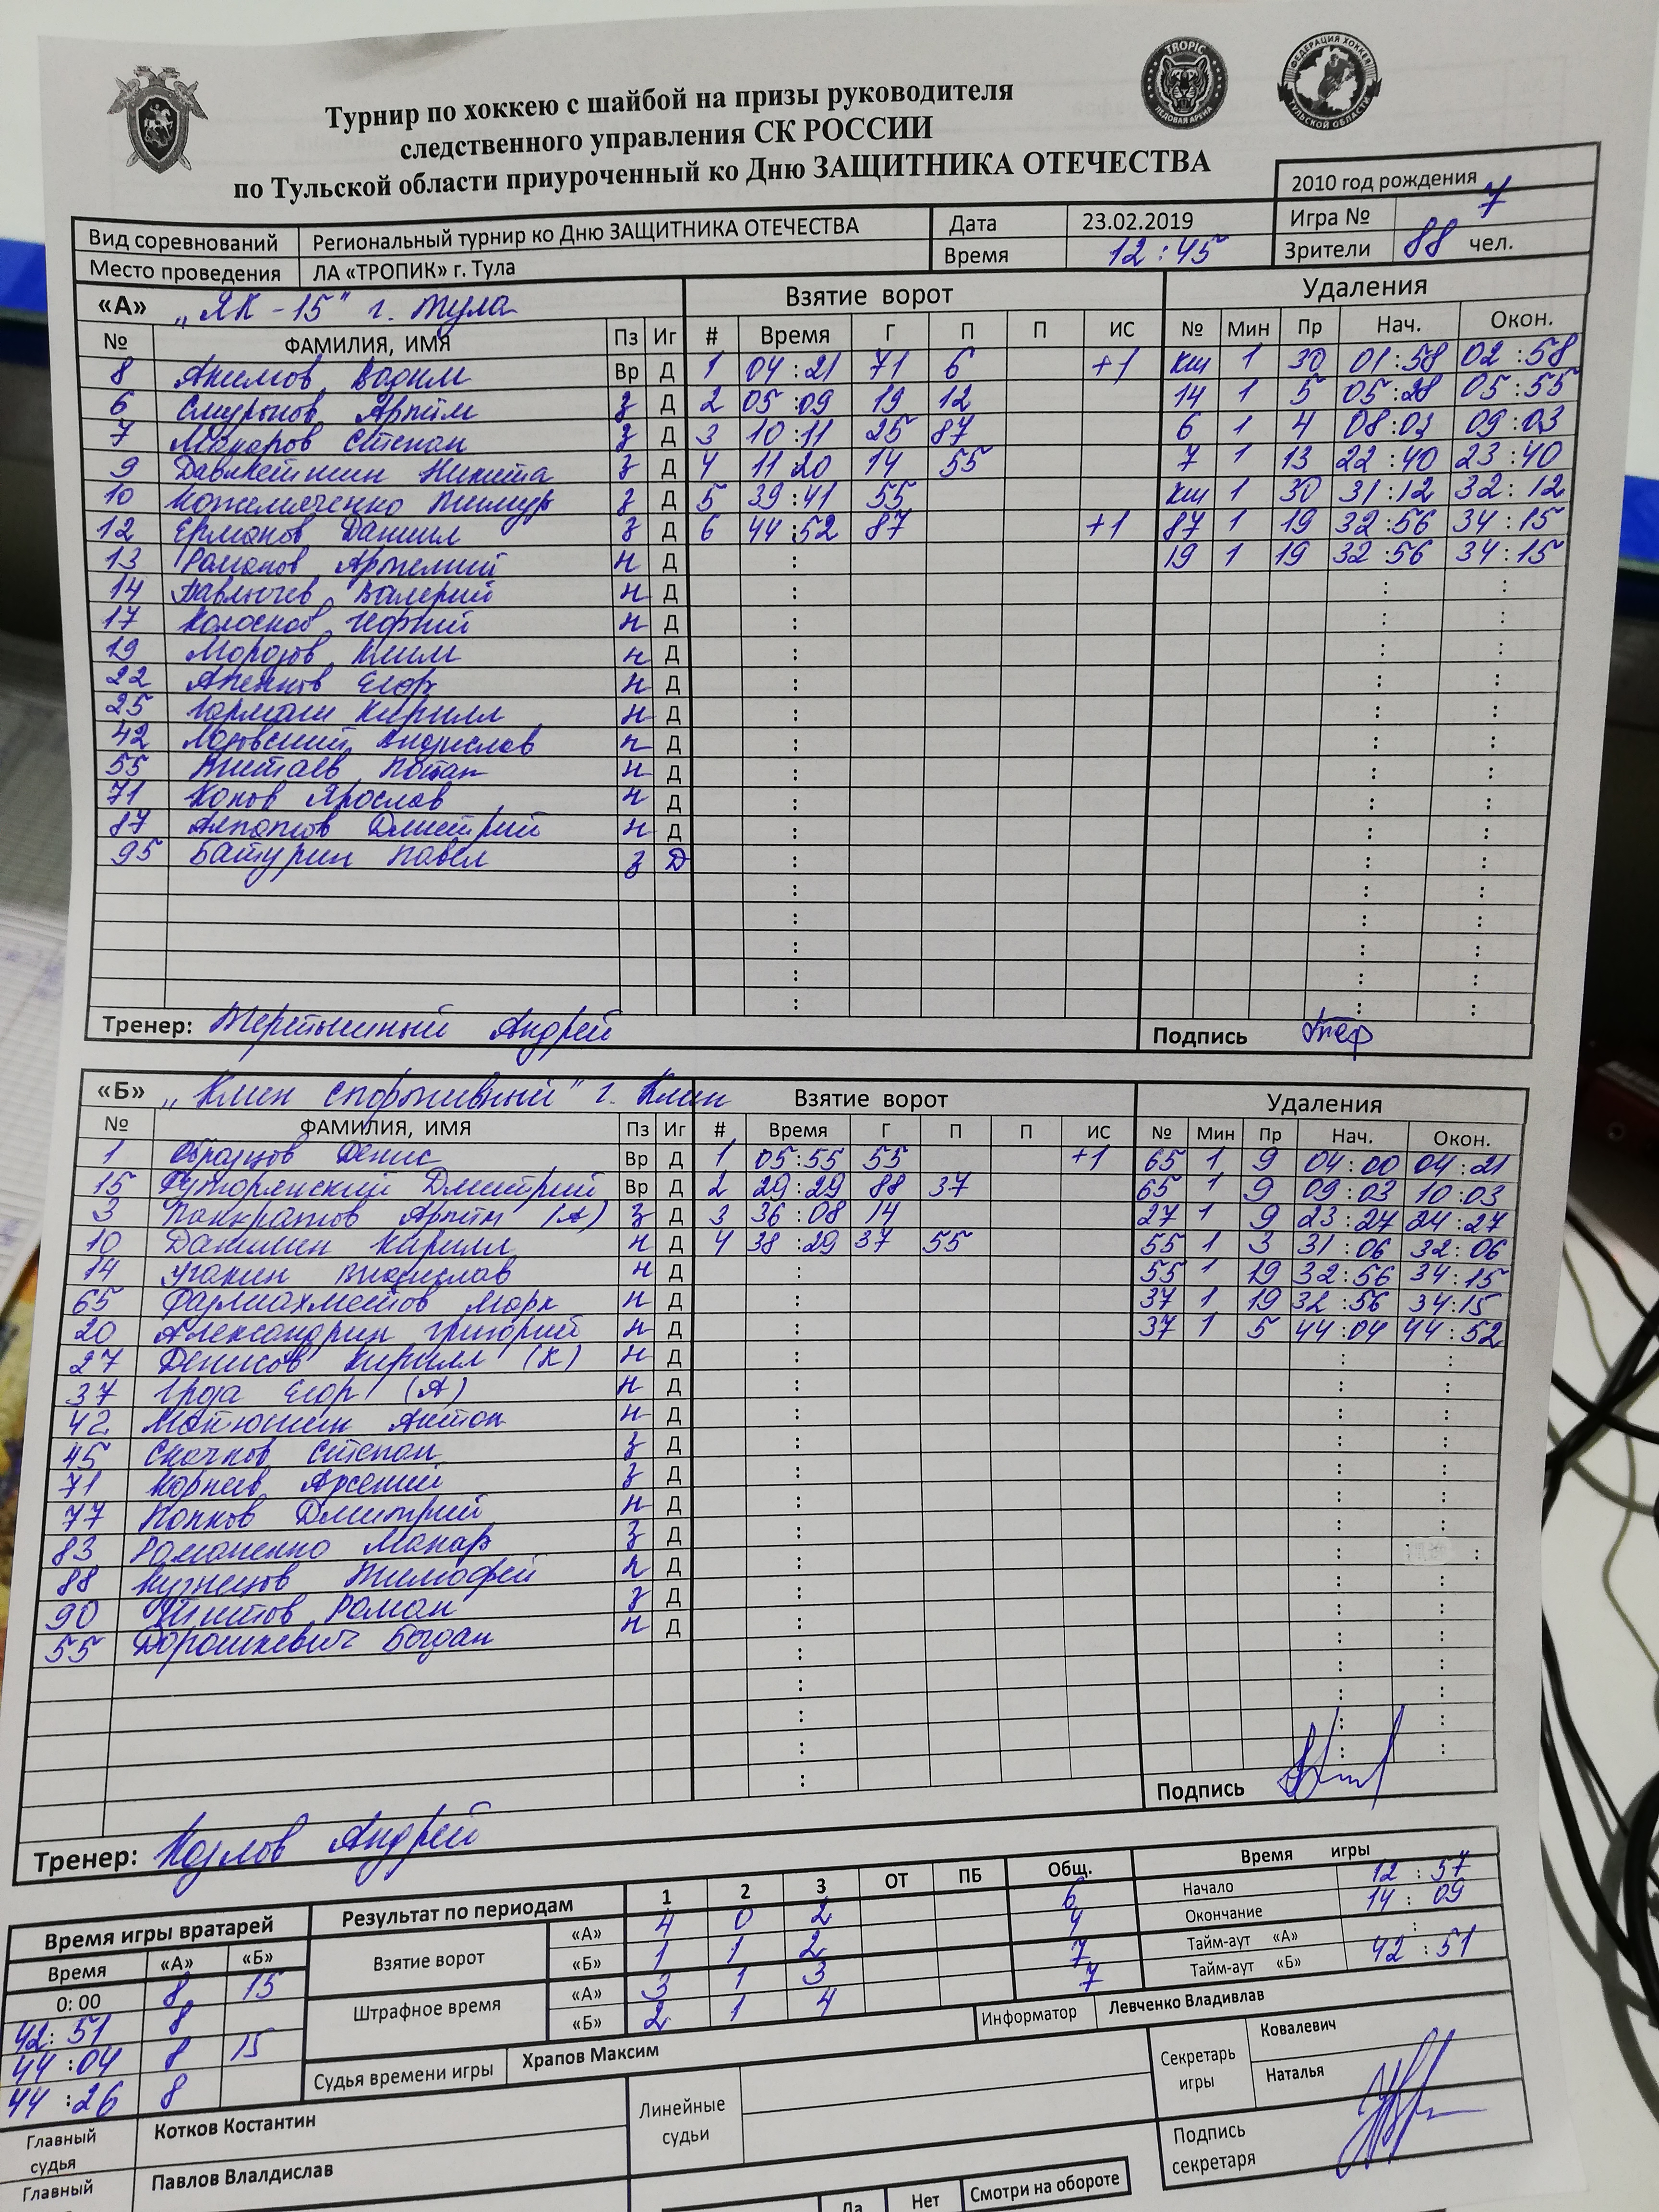 TROPIC
ЛЕДОВАЯ АРЕНА
ФЕДЕРАЦИЯ ХОККЕЯ
ТУЛЬСКОЙ ОБЛАСТИ
Турнир по хоккею с шайбой на призы руководителя
следственного управления СК РОССИИ
по Тульской области приуроченный ко Дню ЗАЩИТНИКА ОТЕЧЕСТВА
2010 год рождения
Вид соревнований Региональный турнир ко Дню ЗАЩИТНИКА ОТЕЧЕСТВА Дата 23.02.2019 Игра № 7
Место проведения ЛА «ТРОПИК» г. Тула Время 12:45 Зрители 88 чел.
«А» „ЯК-15" г. Тула Взятие ворот Удаления
№ ФАМИЛИЯ, ИМЯ Пз Иг # Время Г П П ИС № Мин Пр Нач. Окон.
8 Акимов Вадим Вр Д 1 04:21 71 6 +1 кш 1 30 01:58 02:58
6 Артём з Д 2 05:09 19 12 14 1 5 05:28 05:55
7 Макаров Степан з Д 3 10:11 25 87 6 1 4 08:03 09:03
9 Давлетшин Никита з Д 4 11:20 14 55 7 1 13 22:40 23:40
10 Тимур з Д 5 39:41 55 кш 1 30 31:12 32:12
12 Ермаков Даниил з Д 6 44:52 87 +1 87 1 19 32:56 34:15
13 Романов Артемий н Д : 19 1 19 32:56 34:15
14 Павлычев Валерий н Д : : :
17 Колосков Георгий н Д : : :
19 Морозов Клим н Д : : :
22 Егор н Д : : :
25 Кирилл н Д : : :
42 Владислав н Д : : :
55 Потап н Д : : :
71 Конов Ярослав н Д : : :
87 Дмитрий н Д : : :
95 Батурин Павел з Д : : :
: : :
: : :
: : :
: : :
: : :
Тренер: Андрей Подпись
«Б» „Клин спортивный" г. Клин Взятие ворот Удаления
№ ФАМИЛИЯ, ИМЯ Пз Иг # Время Г П П ИС № Мин Пр Нач. Окон.
1 Образцов Денис Вр Д 1 05:55 55 +1 65 1 9 04:00 04:21
15 Дмитрий Вр Д 2 29:29 88 37 65 1 9 09:03 10:03
3 Панкратов Артём (А) з Д 3 36:08 14 27 1 9 23:27 24:27
10 Данилин Кирилл н Д 4 38:29 37 55 55 1 3 31:06 32:06
14 Владислав н Д : 55 1 19 32:56 34:15
65 Фармахметов Марк н Д : 37 1 19 32:56 34:15
20 Александрин Григорий н Д : 37 1 5 44:04 44:52
27 Денисов Кирилл (К) н Д : : :
37 Гроза Егор (А) н Д : : :
42 Матюшин Антон н Д : : :
45 Скачков Степан з Д : : :
71 Корнев Арсений з Д : : :
77 Попков Дмитрий н Д : : :
83 Романенко Макар з Д : : :
88 Кузнецов Тимофей н Д : : :
90 Роман з Д : : :
55 Дорошкевич Богдан н Д : : :
: : :
: : :
: : :
: : :
:
Подпись
Тренер: Козлов Андрей
Время игры вратарей Результат по периодам 1 2 3 ОТ ПБ Общ. Время игры
Время «А» «Б» Взятие ворот «А» 4 0 2 6 Начало 12:57
0:00 8 15 «Б» 1 1 2 4 Окончание 14:09
42:51 8 Штрафное время «А» 3 1 3 7 Тайм-аут «А» :
44:04 8 15 «Б» 2 1 4 7 Тайм-аут «Б» 42:51
44:26 8 Судья времени игры Храпов Максим Информатор Левченко Владивлав
Главный судья Котков Костантин Линейные судьи Секретарь игры Ковалевич Наталья
Главный Павлов Влалдислав Подпись секретаря
Да Нет Смотри на обороте